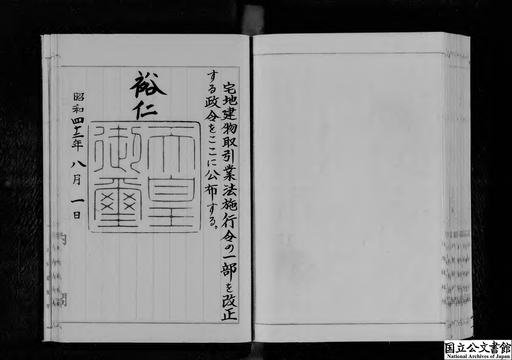 宅地建物取引業法施行令の一部を改正
する政令をここに公布する。
裕仁
天皇
御璽
昭和四十二年八月一日
内閣
国立公文書館
National Archives of Japan